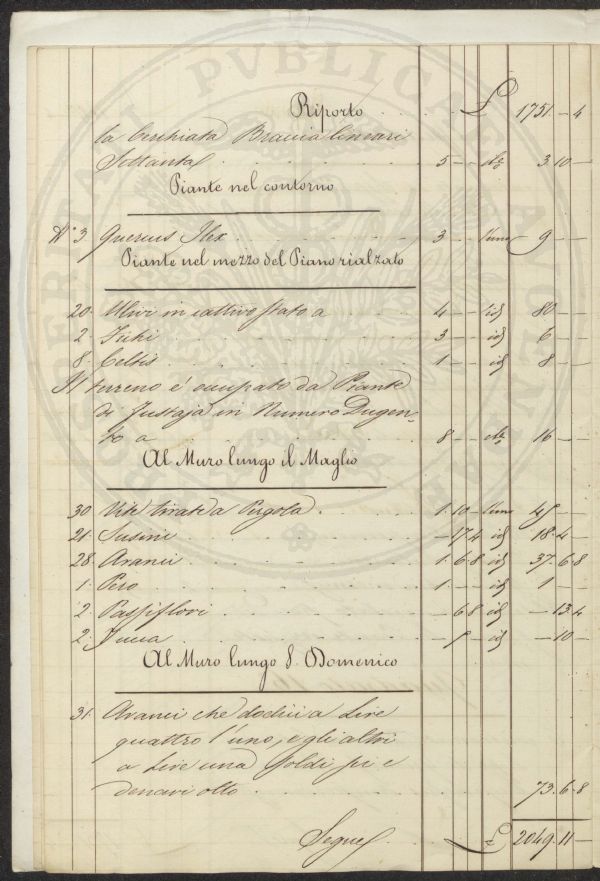 Riporto . . . . £ 1751 - 4
la Cerchiata Braccia lineari
Settanta . . . . 5 - - 3. 10 -
Piante nel contorno
N.° 3. Quercus Ilex . . . . 3 - - l'uno 9 - -
Piante nel mezzo del Piano rialzato
20. Ulivi in cattivo stato a . . . . 4 - - id 80 - -
2. Fichi . . . . 3 - - id 6 - -
8. Celtis . . . . 1 - - id 8 - -
Il terreno é occupato da Piante
di Fustaja in Numero Dugen-
to a . . . . 8 - - 16 - -
Al Muro lungo il Maglio
30 Vite tirate a Pergola . . . . 1. 10 - l'una 45 - -
21. Susini . . . . - 17. 4 id 18. 4 -
28. Aranci . . . . 1. 6. 8 id 37. 6. 8
1. Pero . . . . 1 - - id 1 - -
2. Passiflori . . . . - 6. 8 id - 13. 4
2. Jucca . . . . - 5 - id - 10 -
Al Muro lungo S. Domenico
31. Aranci che dodici a Lire
quattro l'uno, e gli altri
a Lire una Soldi sei e
denari otto . . . . 73. 6. 8
Segue . . . £ 2049. 11 -
PVBLICAE AVC